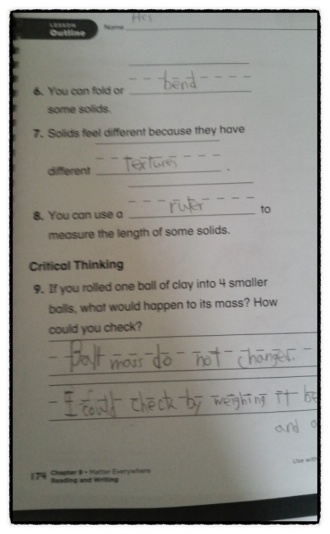 LESSON
Outline
Name
6. You can fold or bend
some solids.
7. Solids feel different because they have
different textures .
8. You can use a ruler to
measure the length of some solids.
Critical Thinking
9. If you rolled one ball of clay into 4 smaller
balls, what would happen to its mass? How
could you check?
mass do not changes.
I could check by weighing it be
and
174 Chapter 8 • Matter Everywhere
Reading and Writing
Use with